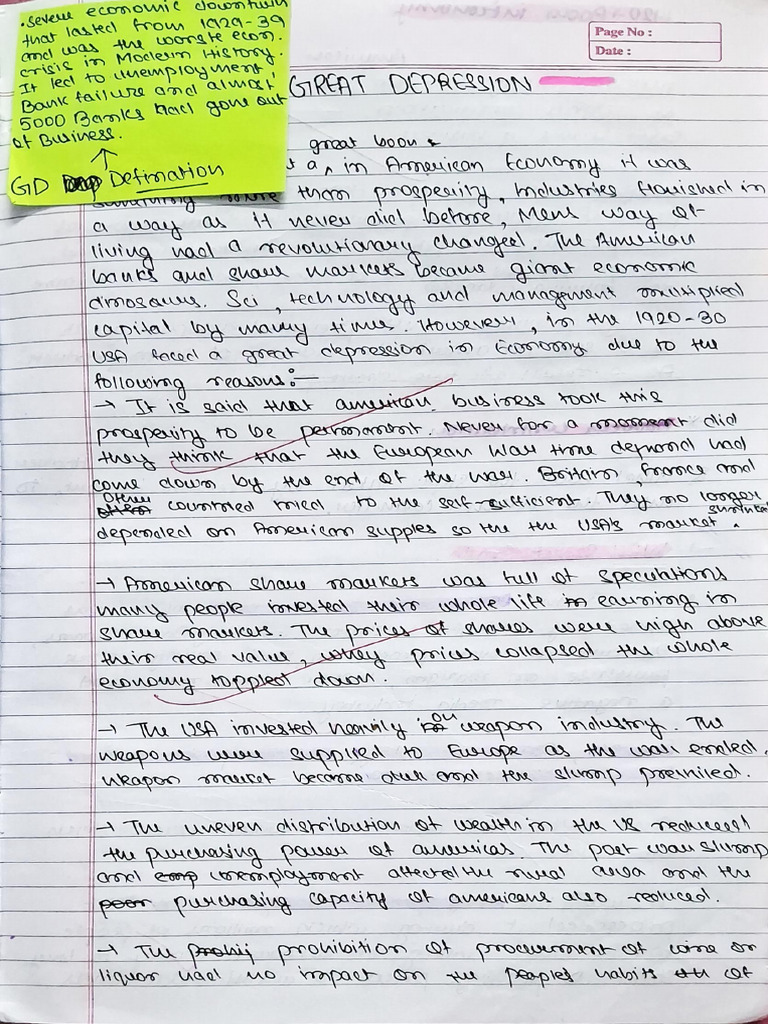 • severe economic downturn
that lasted from 1929-39
and was the worste econ.
crisis in Modern History.
It led to unemployment,
Bank failure and almost
5000 Banks had gone out
of Business.
GD Defination
Page No :
Date :
GREAT DEPRESSION
great boon
a ^ in American Economy it was
something more than prosperity, Industries flourished in
a way as it never did before, Mens way of
living had a revolutionary changed. The American
banks and share markets became giant economic
dinosaurs. Sci, technology and management multiplied
capital by many times. However, in the 1920-30
USA faced a great depression in Economy due to the
following reasons:-
→ It is said that american business took this
prosperity to be permanant. Never for a moment did
they think that the European War time demand had
come down by the end of the war. Britain, france and
other countried tried to the self-sufficient. They no longer
depended on American supples so the the USA's market shrinked.
→ American share markets was full of speculations
many people invested their whole life in earning in
share markets. The prices of shares were high above
their real value, whey prices collapsed the whole
economy toppled down.
→ The USA invested heavily on weapon industry. The
weapons were supplied to Europe as the wall ended,
weapon market became dull and the slump prevailed.
→ The uneven distribution of wealth in the US reduced
the purchasing power of americas. The post war slump
and unemployment affected the rural area and the
purchasing capacity of americans also reduced.
→ The prohibition of procurement of wine or
liquor had no impact on the peoples habits of